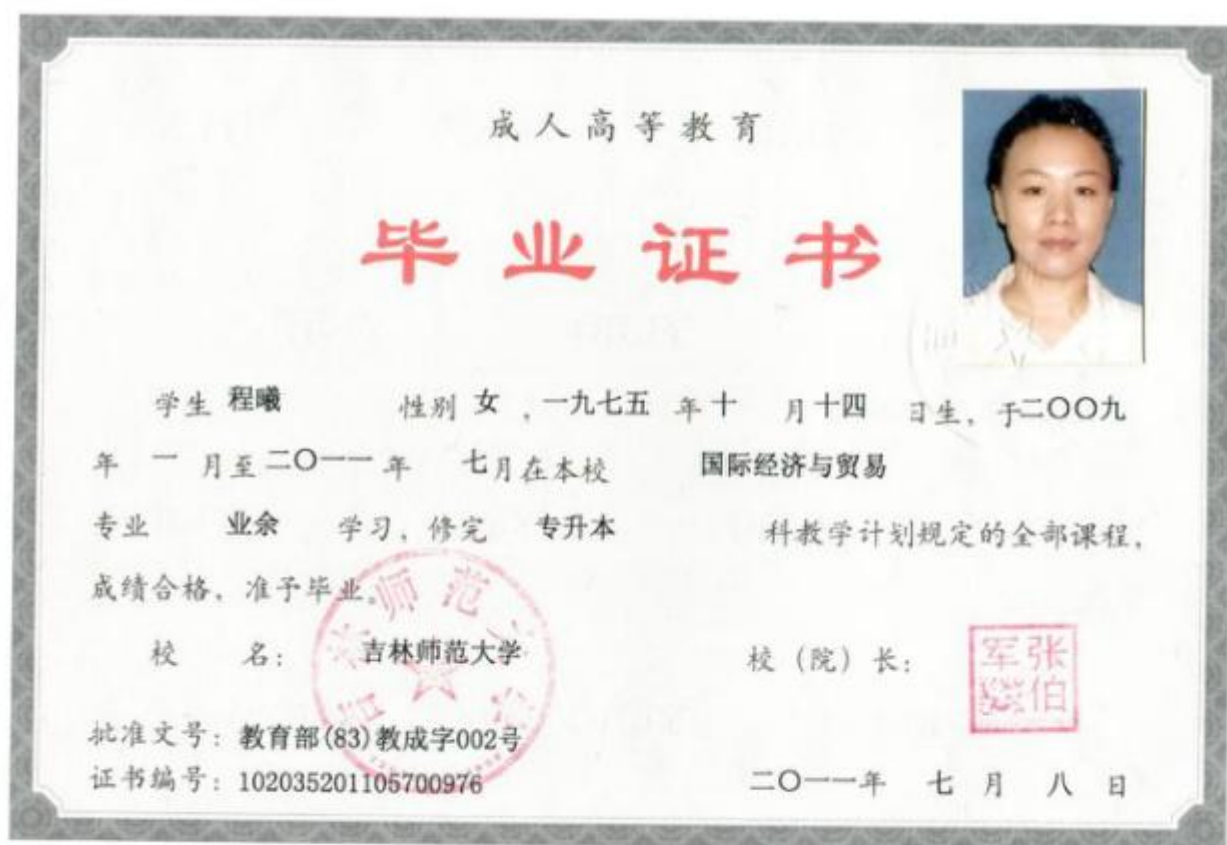 成人高等教育
毕业证书
学生 程曦 性别 女，一九七五 年 十 月 十四 日生，于二〇〇九
年 一 月至 二〇一一 年 七 月在本校 国际经济与贸易
专业 业余 学习，修完 专升本 科教学计划规定的全部课程，
成绩合格，准予毕业。
校 名： 吉林师范大学
校（院）长：
张伯军
批准文号：教育部(83)教成字002号
证书编号：102035201105700976
二〇一一年 七 月 八 日